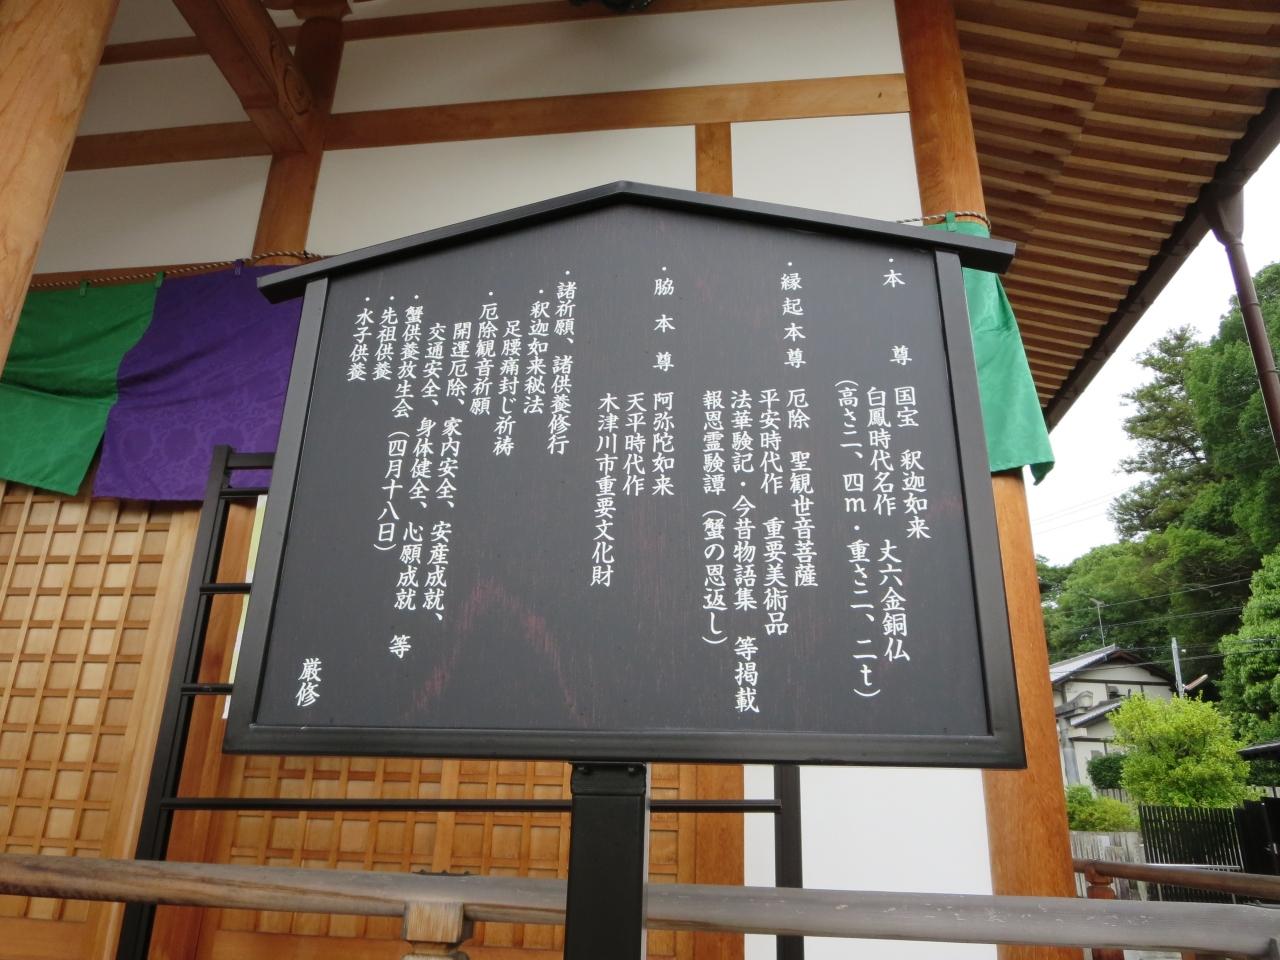 ・本尊 国宝 釈迦如来
白鳳時代名作 丈六金銅仏
(高さ二、四m・重さ二、二t)
・縁起本尊 厄除 聖観世音菩薩
平安時代作 重要美術品
法華験記・今昔物語集 等掲載
報恩霊験譚(蟹の恩返し)
・脇本尊 阿弥陀如来
天平時代作
木津川市重要文化財
・諸祈願、諸供養修行
・釈迦如来秘法
足腰痛封じ祈祷
・厄除観音祈願
開運厄除、家内安全、安産成就、
交通安全、身体健全、心願成就 等
・蟹供養放生会(四月十八日)
・先祖供養
・水子供養
厳修